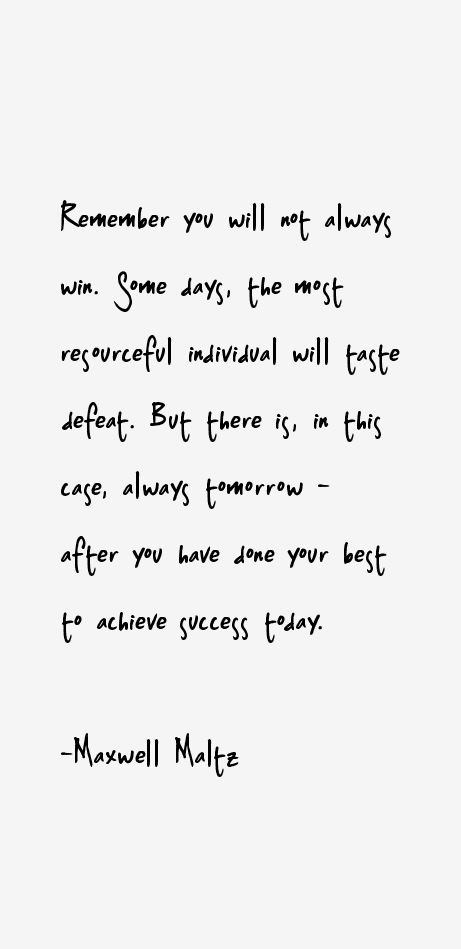 Remember you will not always
win. Some days, the most
resourceful individual will taste
defeat. But there is, in this
case, always tomorrow -
after you have done your best
to achieve success today.
-Maxwell Maltz